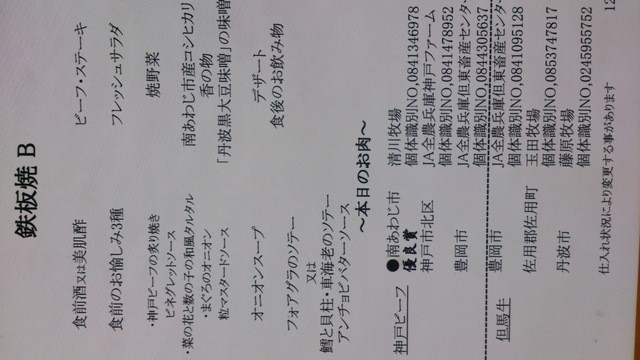 鉄板焼 B
食前酒又は美肌酢
食前のお愉しみ3種
・神戸ビーフの炙り焼き
ビネグレットソース
・菜の花と数の子の和風タルタル
・まぐろのオニオン
粒マスタードソース
オニオンスープ
フォアグラのソテー
鱈と貝柱・車海老のソテー
又は
アンチョビバターソース
ビーフ・ステーキ
フレッシュサラダ
焼野菜
南あわじ市産コシヒカリ
香の物
「丹波黒大豆味噌」の味噌
デザート
食後のお飲み物
～本日のお肉～
神戸ビーフ ●南あわじ市 清川牧場
優良賞 個体識別NO,0841346978
神戸市北区 JA全農兵庫神戸ファーム
個体識別NO,0841478952
豊岡市 JA全農兵庫但東畜産センター
個体識別NO,0844305637
但馬牛 豊岡市 JA全農兵庫但東畜産センター
個体識別NO,0841095128
佐用郡佐用町 玉田牧場
個体識別NO,0853747817
丹波市 藤原牧場
個体識別NO,0245955752
仕入れ状況により変更する事があります
12